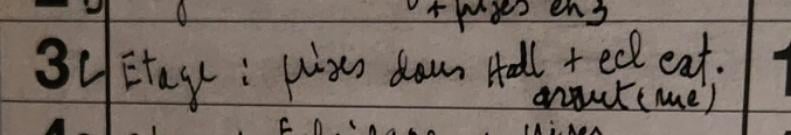 + prises en 3
3L Etage : prises dans Hall + ecl ext.
avant (rue)